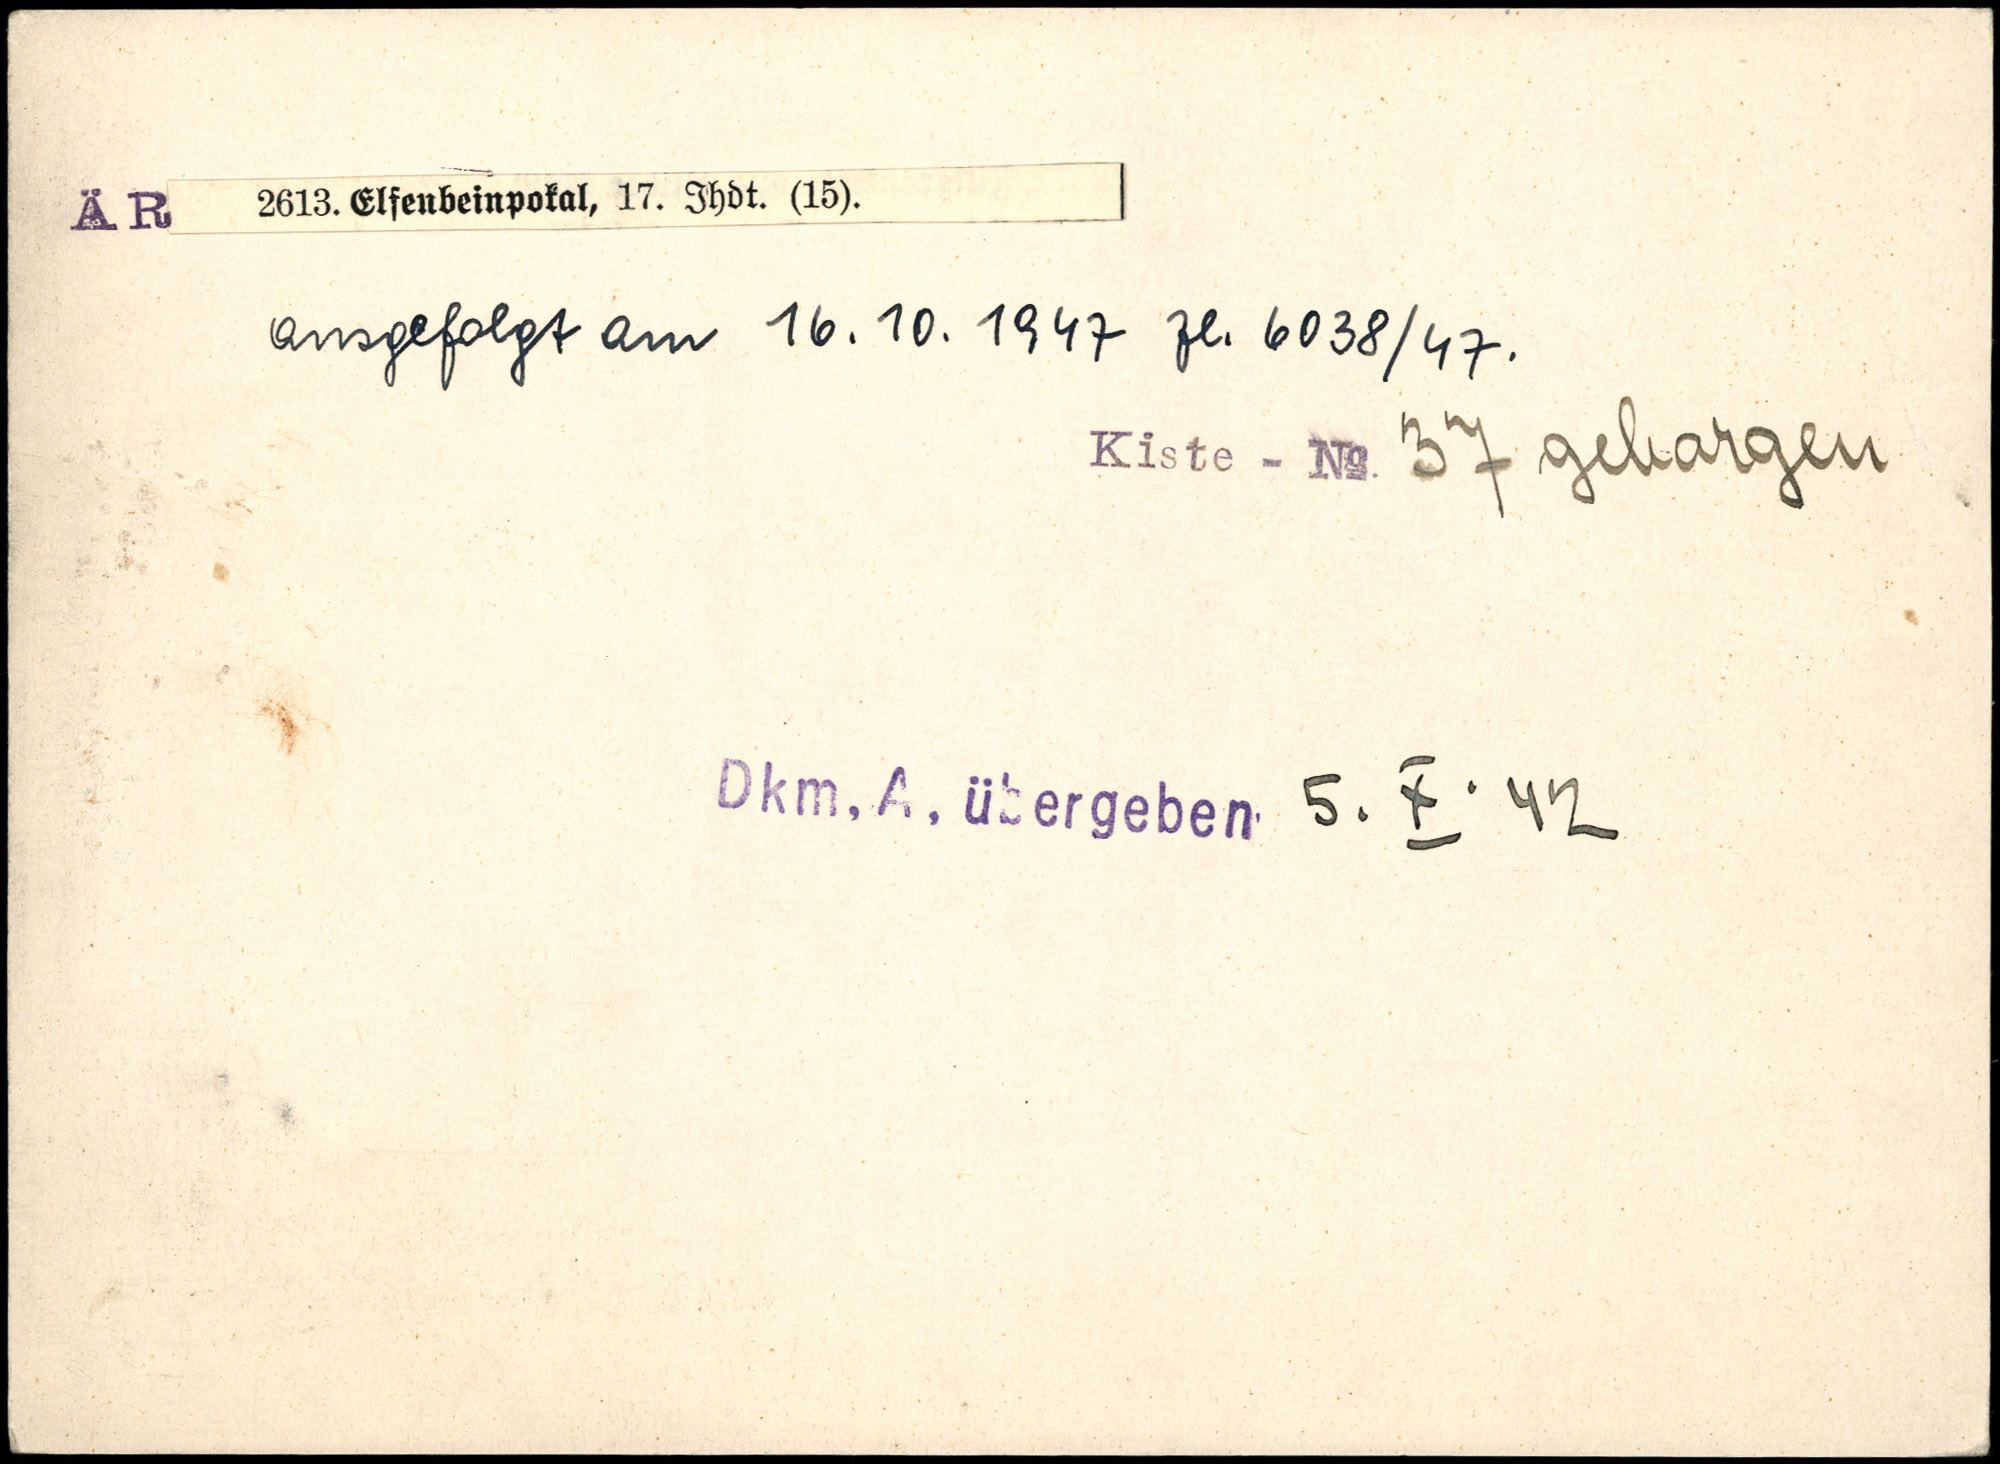 ÄR 2613. Elfenbeinpokal, 17. Jhdt. (15).
ausgefolgt am 16. 10. 1947 Zl. 6038/47.
Kiste - № 37 geborgen
Dkm. A. übergeben 5. X. 42